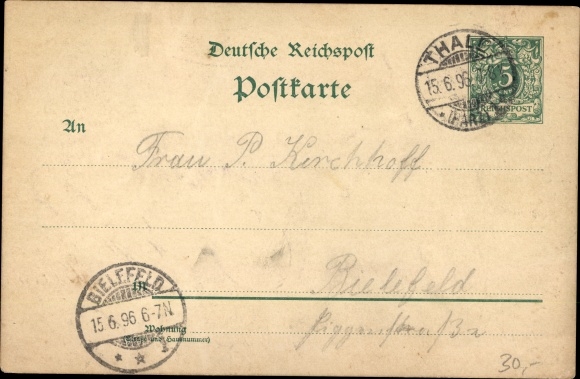 Deutsche Reichspost
Postkarte
THALE
15.6.96
(HARZ)
5
REICHSPOST
An
Frau P. Kirchhoff
in
Bielefeld
BIELEFELD
15.6.96 6-7N
Wohnung
(Straße und Hausnummer)
30,-